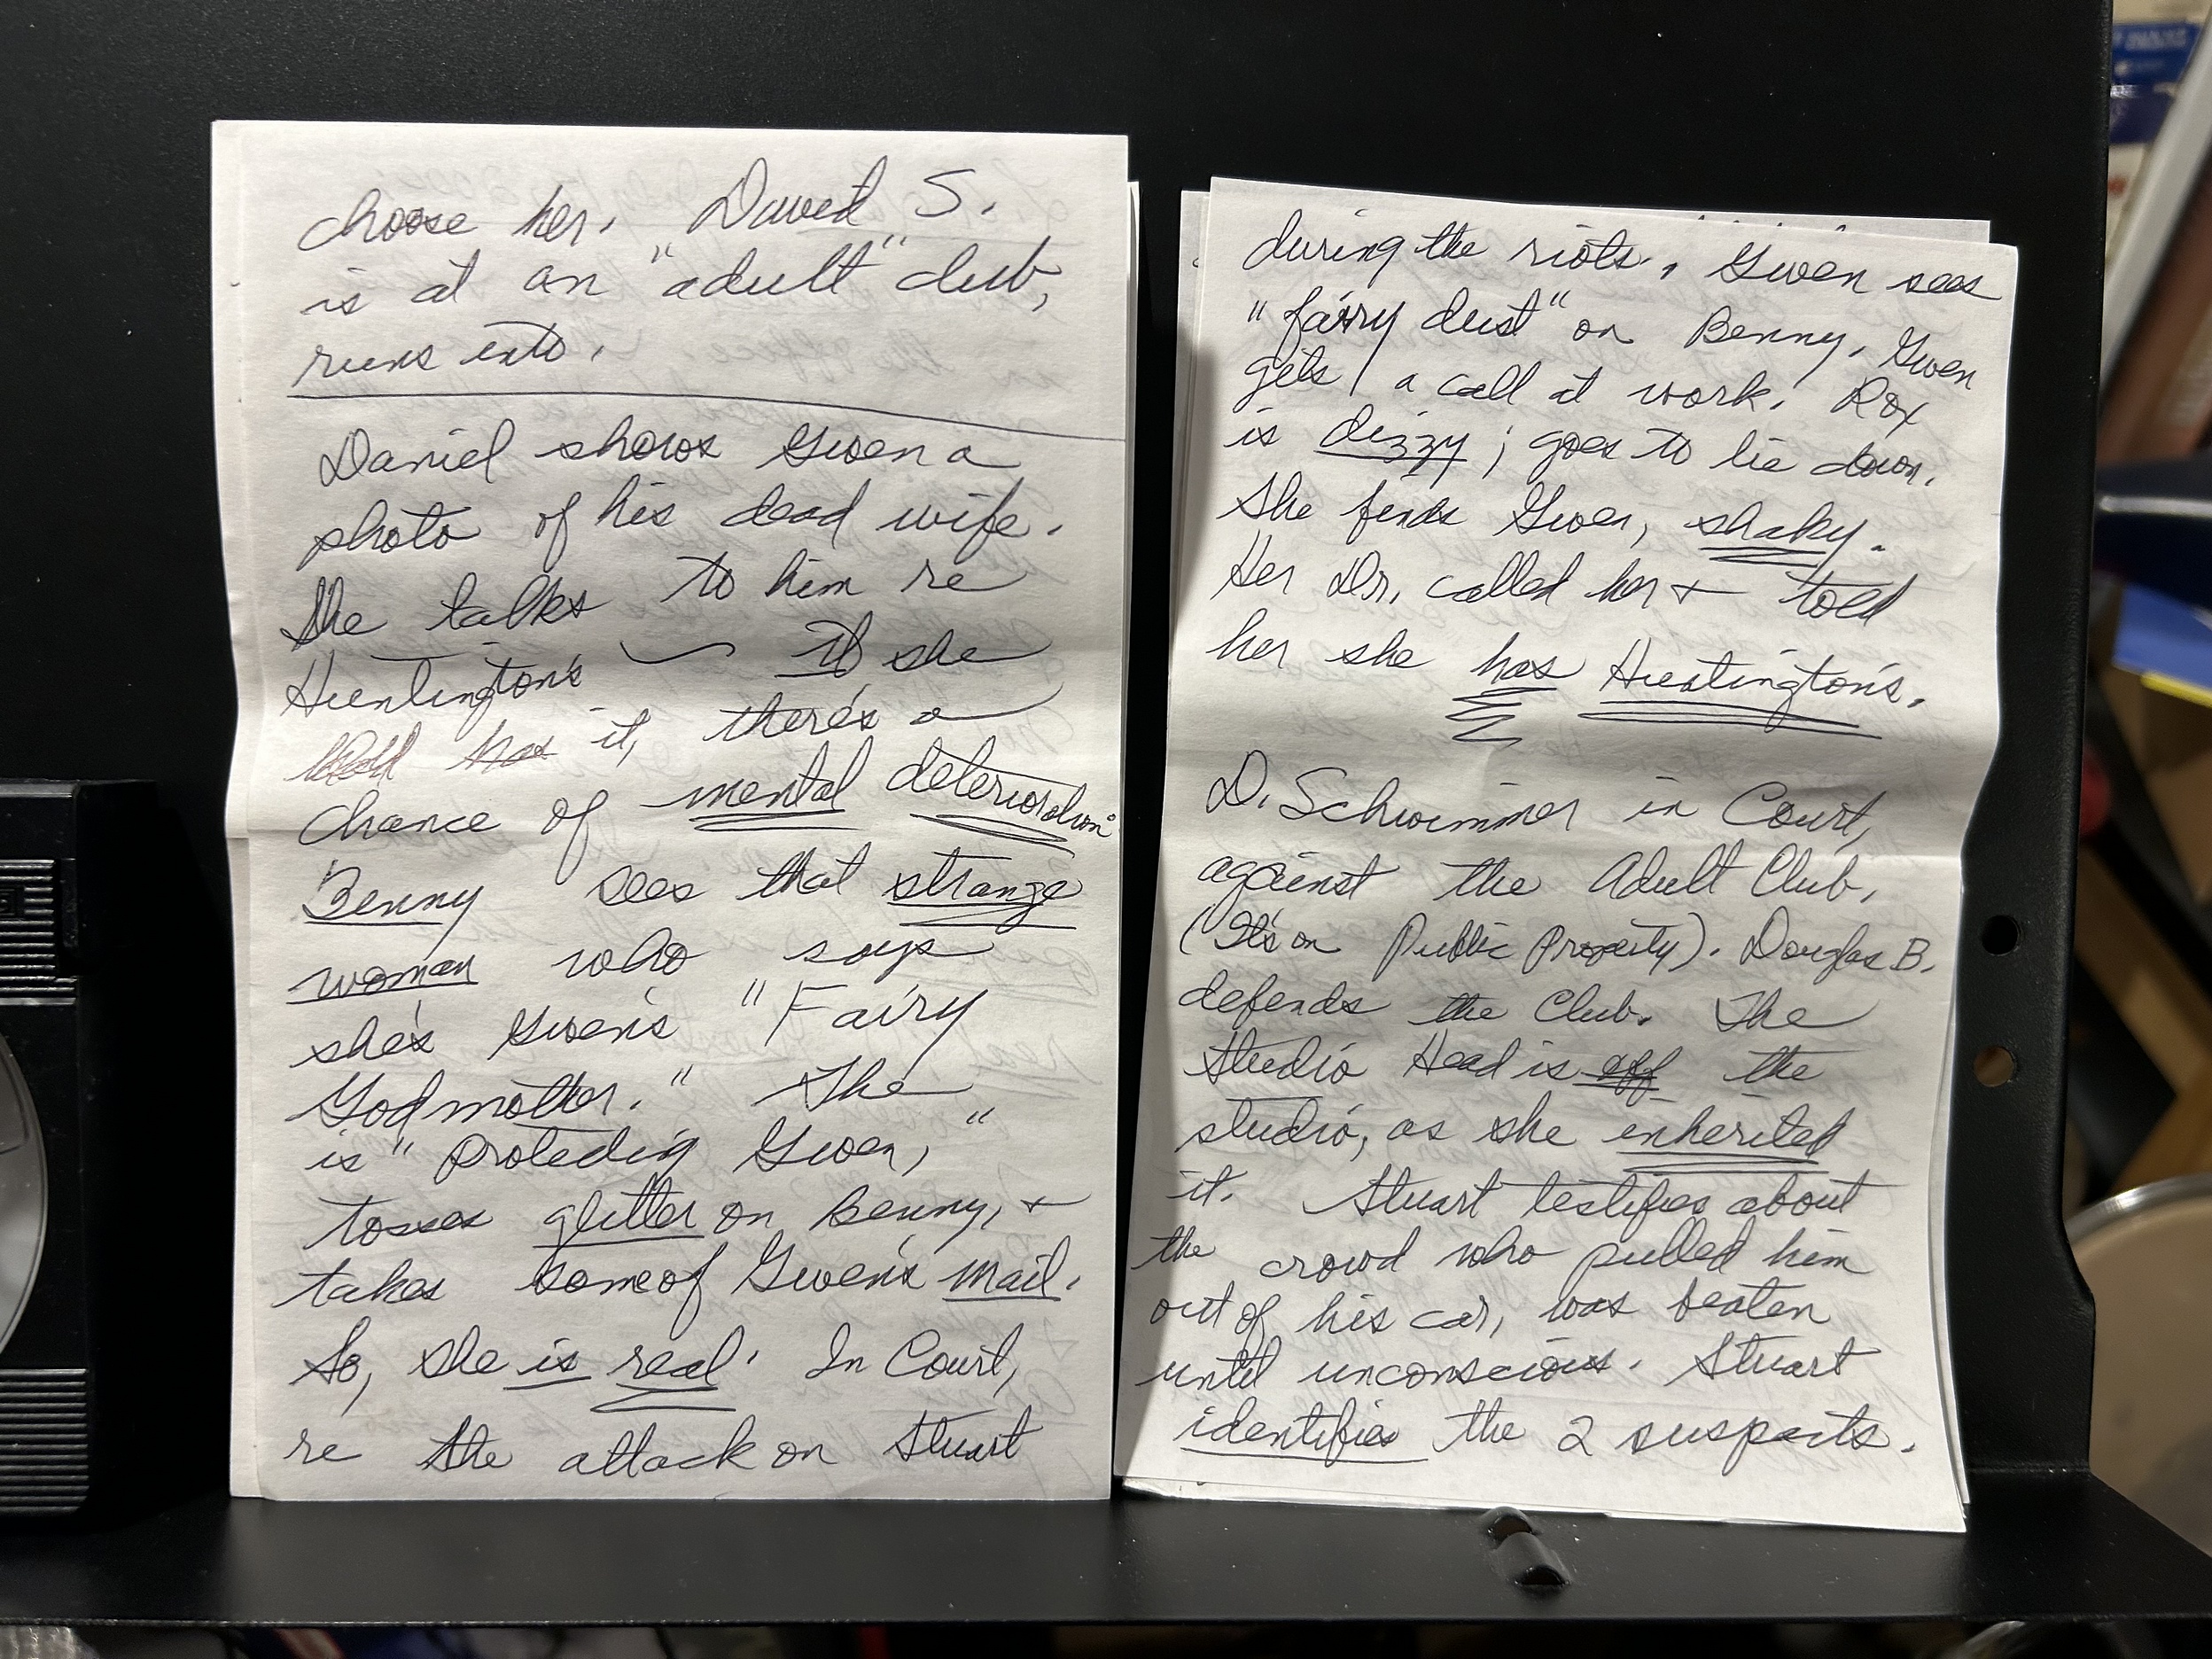 choose her. David S.
is at an "adult" club,
runs into.
Daniel shows Gwen a
photo of his dead wife.
She talks to him re
Huntington's — If she
has it, there's a
chance of mental deterioration.
Benny sees that strange
woman who says
she's Gwen's "Fairy
Godmother." She
is "protecting Gwen,"
tosses glitter on Benny, +
takes some of Gwen's mail.
So, she is real. In Court,
re the attack on Stuart
during the riots. Gwen sees
"fairy dust" on Benny. Gwen
gets a call at work. Rox
is dizzy; goes to lie down.
She finds Gwen, shaky.
Her Dr. called her + told
her she has Huntington's.
D. Schwimmer in Court,
against the Adult Club.
(It's on Public Property). Douglas B.
defends the Club. The
Studio Head is off the
studio, as she inherited
it. Stuart testifies about
the crowd who pulled him
out of his car, was beaten
until unconscious. Stuart
identifies the 2 suspects.